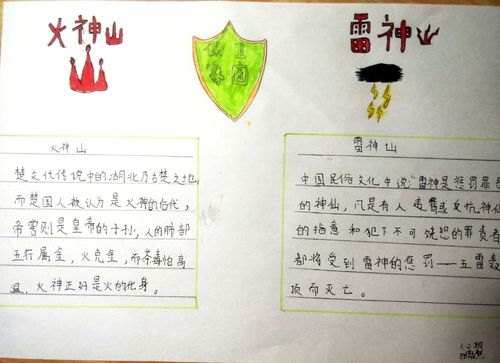 火神山
保卫
家园
雷神山
火神山
楚文化传说中的湖北乃古楚之地,
而楚国人被认为是火神的后代,
帝喾则是皇帝的子孙,人的肺部
五行属金,火克金,而茶毒怕高
温,火神正好是火的化身。
雷神山
中国民俗文化中说"雷神是惩罚罪
的神仙,凡是有人违背或反抗神仙
的旨意和犯下不可饶恕的罪责者
都将受到雷神的惩罚——五雷轰
顶而灭亡。